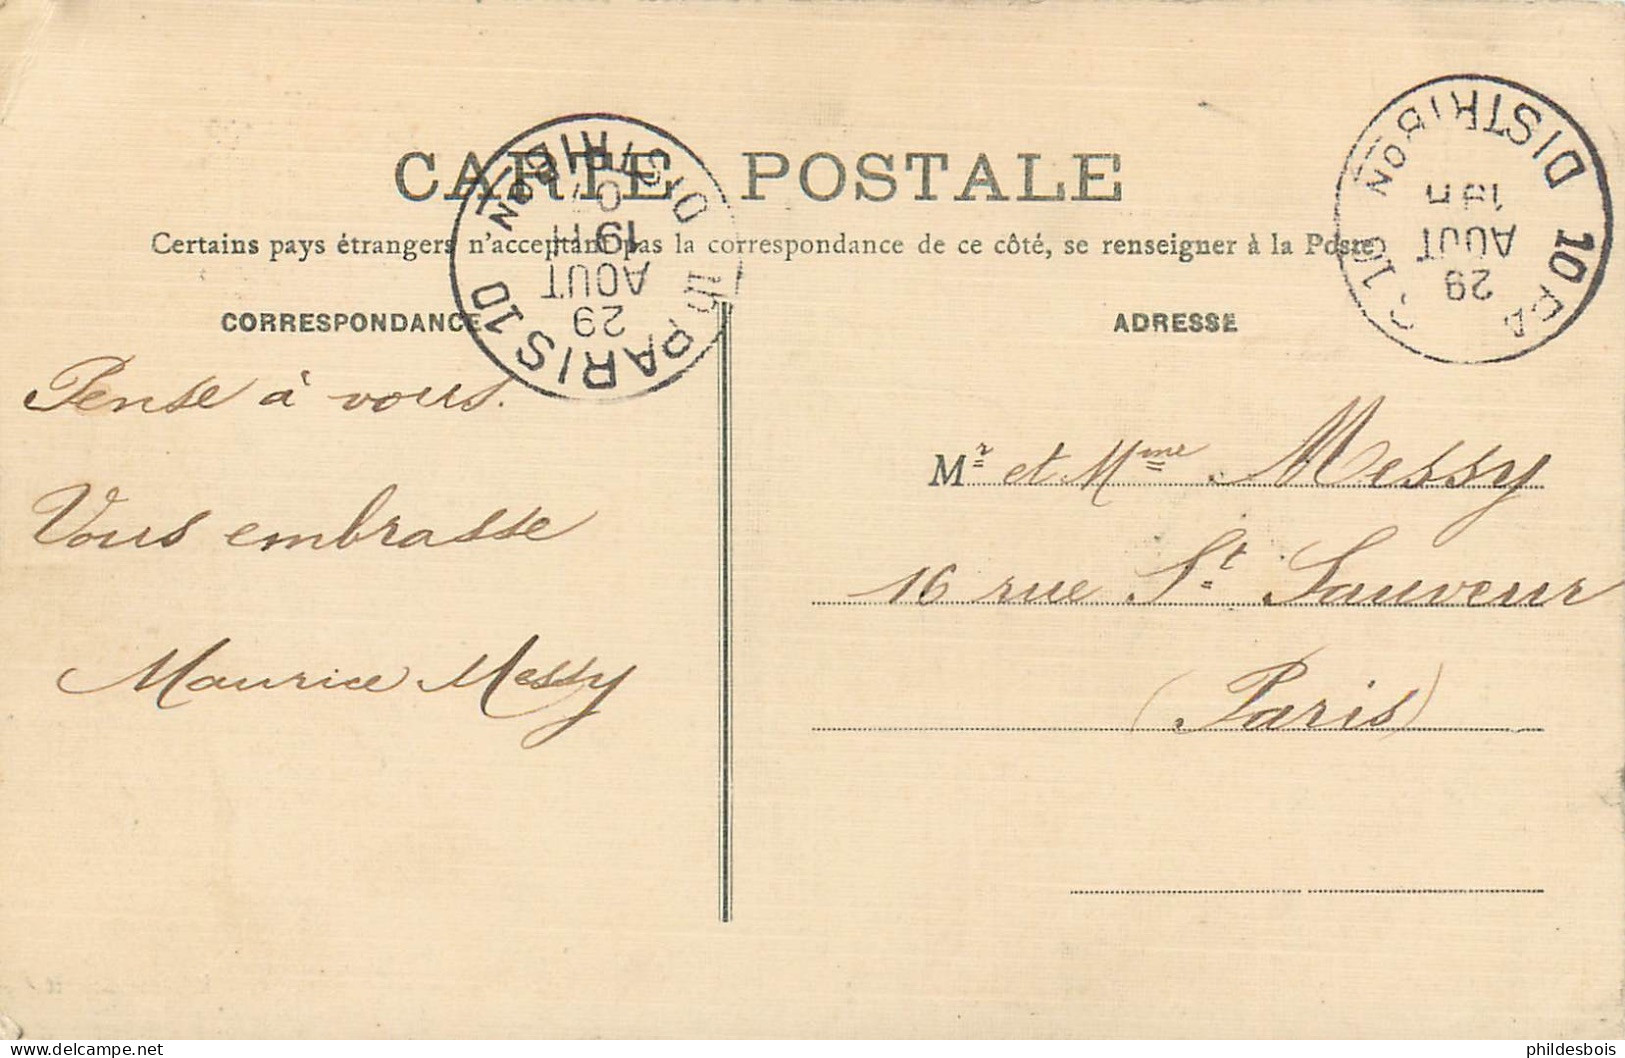 CARTE POSTALE
Certains pays étrangers n'acceptant pas la correspondance de ce côté, se renseigner à la Poste
CORRESPONDANCE
ADRESSE
Pense à vous.
Vous embrasse
Maurice Messy
Mr et Mme Messy
16 rue St. Sauveur
(Paris)
PARIS 10
DISTRIBON
29
AOUT
DISTRIBON
29
AOUT
phildesbois